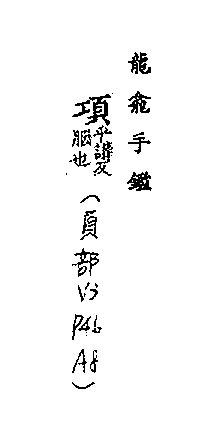 龍龕手鑑
項乎講反
脳也
(頁部
V3
P46
A8)